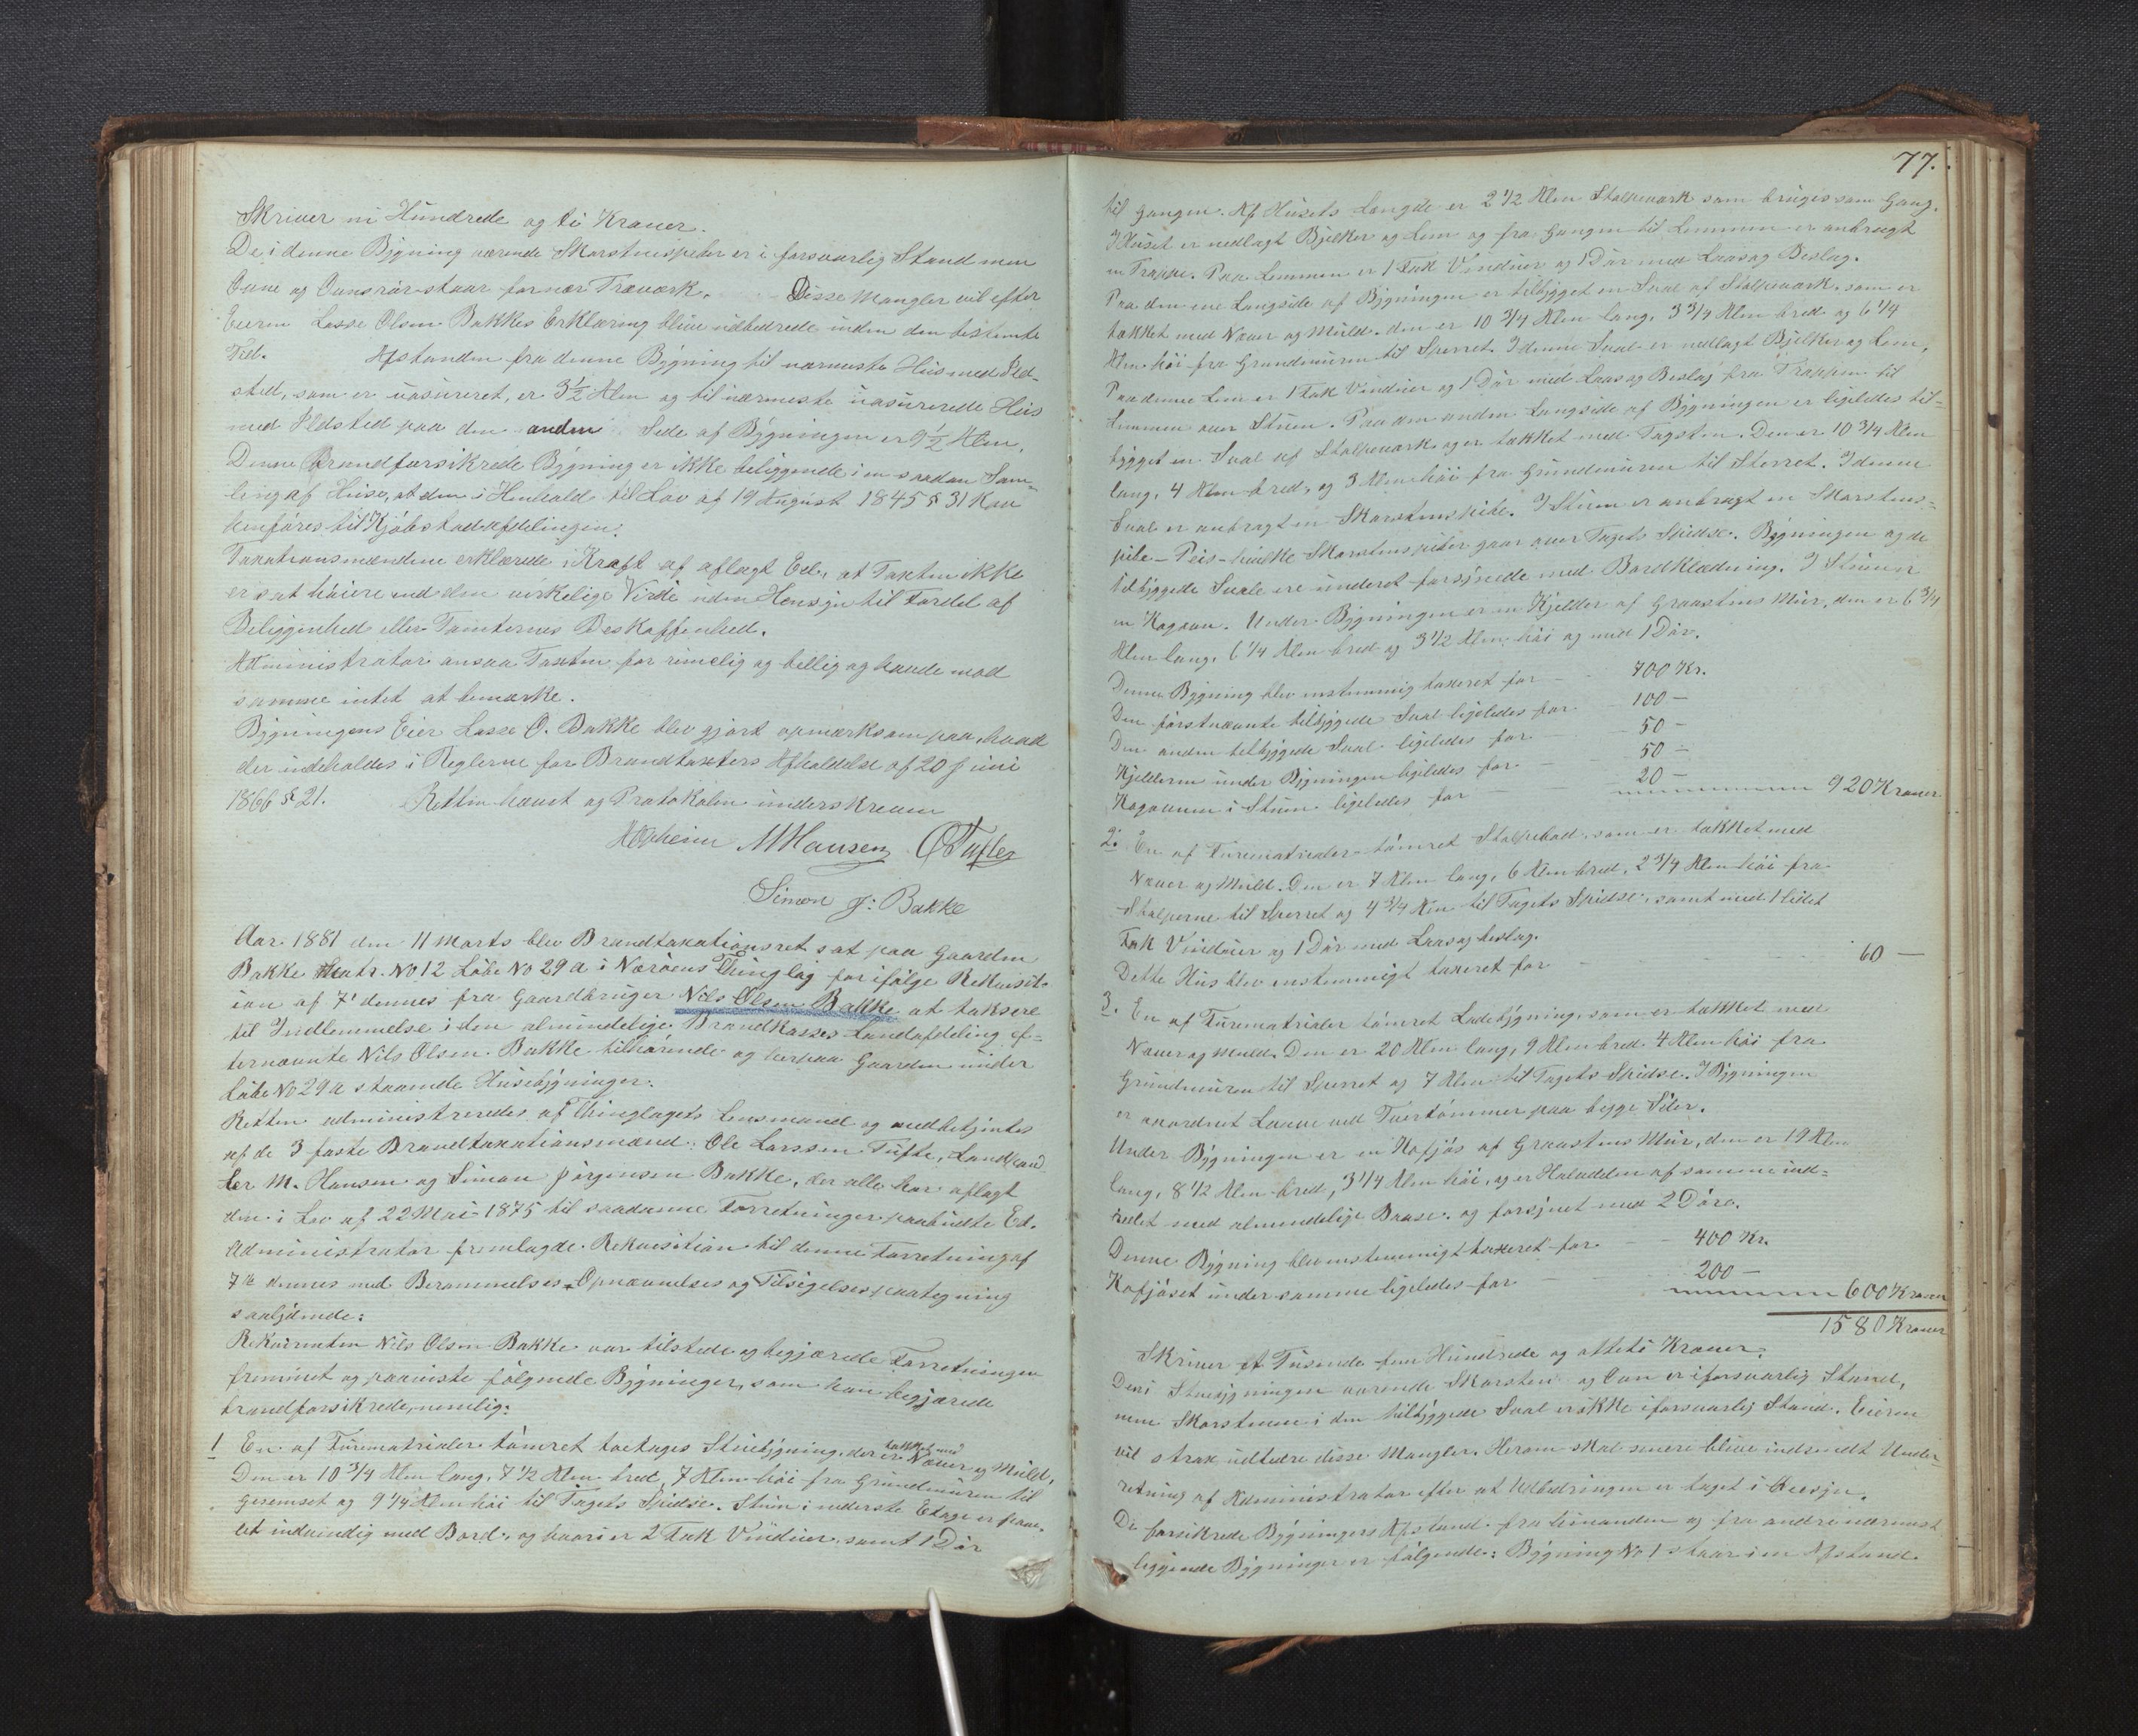 Skriver ni Hundrede og ti Kroner.
De i denne Bygning værende Skorstenspiber er i forsvarlig Stand men
Ovne og Ovnsrør staar for nær Træværk. Disse Mangler vil efter
Eieren Lasse Olsen Bakkes Erklæring blive udbedrede inden den bestemte
Tid. Afstanden fra denne Bygning til nærmeste Hus med Ild-
sted, som er uasureret, er 3½ Alen og til nærmeste uasurerede Hus
med Ildsted paa den anden Side af Bygningen er 9½ Alen.
Denne Brandforsikrede Bygning er ikke beliggende i en saadan Sam-
ling af Huse, at den i Henhold til Lov af 19 August 1845 § 31 Kan
henføres til Kjøbstadafdelingen.
Taxationsmændene erklærede i Kraft af aflagt Ed, at Taxten ikke
er sat høiere end den virkelige Værdi uden Hensyn til Fordel af
Beliggenhed eller Tomternes Beskaffenhed.
Administrator ansaa Taxten for rimelig og billig og havde mod
samme intet at bemærke.
Bygningens Eier Lasse O. Bakke blev gjort opmærksom paa, hvad
der indeholdes i Reglerne for Brandtaxters Afholdelse af 20 Juni
1866 § 21. Retten hævet og Protokolen underskreven
M Hansen O Tufter
Simon J: Bakke
Aar 1881 den 11 Marts blev Brandtaxationsret sat paa Gaarden
Bakke Matr. No 12 Løbe No 29 a i Nærøens Thinglag for ifølge Rekvisit-
ion af 7' dennes fra Gaardbruger Nils Olsen Bakke at taksere
til Indlemmelse i den almindelige Brandkasses Landafdeling ef-
ternævnte Nils Olsen Bakke tilhørende og herpaa Gaarden under
Løbe No 29 a staaende Husebygninger.
Retten administreredes af Thinglagets Lensmand og medbetjentes
af de 3 faste Brandtaxationsmænd: Ole Larssen Tufte, Landhand-
ler M. Hansen og Simon Jørgensen Bakke, der alle har aflagt
den i Lov af 22 Mai 1875 til saadanne Forretninger paabudte Ed.
Administrator fremlagde Rekvisition til denne Forretning af
7de dennes med Berammelses- Opnævnelses og Tilsigelsespaategning
saalydende:
Rekvirenten Nils Olsen Bakke var tilstede og begjærede Forretningen
fremmet og paaviste følgende Bygninger, som han begjærede
brandforsikrede, nemlig:
1 En af Furematrialer tømret toetages Stuebygning, der er takket med Næver og Muld,
Den er 10 3/4 Alen lang, 7 1/2 Alen bred, 7 Alen høi fra Grundmuren til
Gesemset og 9 1/4 Alen høi til Tagets Spidse. Stuen i nederste Etage er pane-
let indvendig med Bord, og hvori er 2 Fak Vinduer, samt 1 Dør
77.
til Gangen. Af Husets Længde er 2 1/2 Alen Stolpeværk som bruges som Gang.
I Huset er nedlagt Bjelker og Lem og fra Gangen til Lemmen er anbragt
en Trappe. Paa Lemmen er 1 Fak Vinduer og 1 Dør med Laas og Beslag.
Paa den ene Langside af Bygningen er tilbygget en Sval af Stolpeværk, som er
takket med Næver og Muld, den er 10 3/4 Alen lang, 3 3/4 Alen bred og 6 1/4
Alen høi fra Grundmuren til Sperret. I denne Sval er nedlagt Bjelker og Lem,
Paa denne Lem er 1 Fak Vinduer og 1 Dør med Laas og Beslag fra Trappen til
Lemmen over Stuen. Paa den anden Langside af Bygningen er ligeledes til-
bygget en Sval af Stolpeværk og er takket med Tagsten. Den er 10 3/4 Alen
lang, 4 Alen bred, og 3 Alen høi fra Grundmuren til Sperret. I denne
Sval er anbragt en Skorstenspibe. I Stuen er anbragt en Skorstens-
pibe - Peis - hvilke Skorstenspiber gaar over Tagets Spidse. Bygningen og de
tilbyggede Svale ere underet forsynede med Bordklædning. I Stuen er
en Kogovn. Under Bygningen er en Kjelder af Graastens Mur, den er 6 3/4
Alen lang, 6 1/4 Alen bred og 3 1/2 Alen høi og med 1 Dør.
Denne Bygning blev enstemmig taxeret for - - 700 Kr.
Den førstnævnte tilbyggede Sval ligeledes for - 100 -
Den anden tilbyggede Sval ligeledes for - 50 -
Kjelderen under Bygningen ligeledes for - 50 -
Kogovnen i Stuen ligeledes for - 20 - 920 Kroner
2. En af Furematrialer tømret Stolpebod, som er takket med
Næver og Muld. Den er 7 Alen lang, 6 Alen bred, 2 3/4 Alen høi fra
Stolperne til Sperret og 4 3/4 Alen til Tagets Spidse, samt med 1 lidet
Fak Vinduer og 1 Dør med Laas og beslag.
Dette Hus blev enstemmigt taxeret for - 60 -
3. En af Furematrialer tømret Ladebygning, som er takket med
Næver og Muld. Den er 20 Alen lang, 9 Alen bred, 4 Alen høi fra
Grundmuren til Sperret og 7 Alen til Tagets Spidse. I Bygningen
er anordnet Laave med Tvertømmer paa begge Sider.
Under Bygningen er en Kofjøs af Graastens Mur, den er 19 Alen
lang, 8 1/2 Alen bred, 3 1/4 Alen høi, og er Halvdelen af samme ind-
redet med almindelige Baase, og forsynet med 2 Døre.
Denne Bygning blev enstemmigt taxeret for - - 400 Kr.
Kofjøset under samme ligeledes for - 200 - 600 Kroner
1580 Kroner
Skriver et Tusende fem Hundrede og otteti Kroner.
Den i Stuebygningen værende Skorsten og Ovn er i forsvarlig Stand,
men Skorstenen i den tilbyggede Sval er ikke i forsvarlig Stand. Eieren
vil strax udbedre disse Mangler. Herom skal senere blive indsendt Under-
retning af Administrator efter at Udbedringen er taget i Øiesyn.
De forsikrede Bygningers Afstand fra hinanden og fra andre nærmest
liggende Bygninger er følgende: Bygning No 1 staar i en Afstand